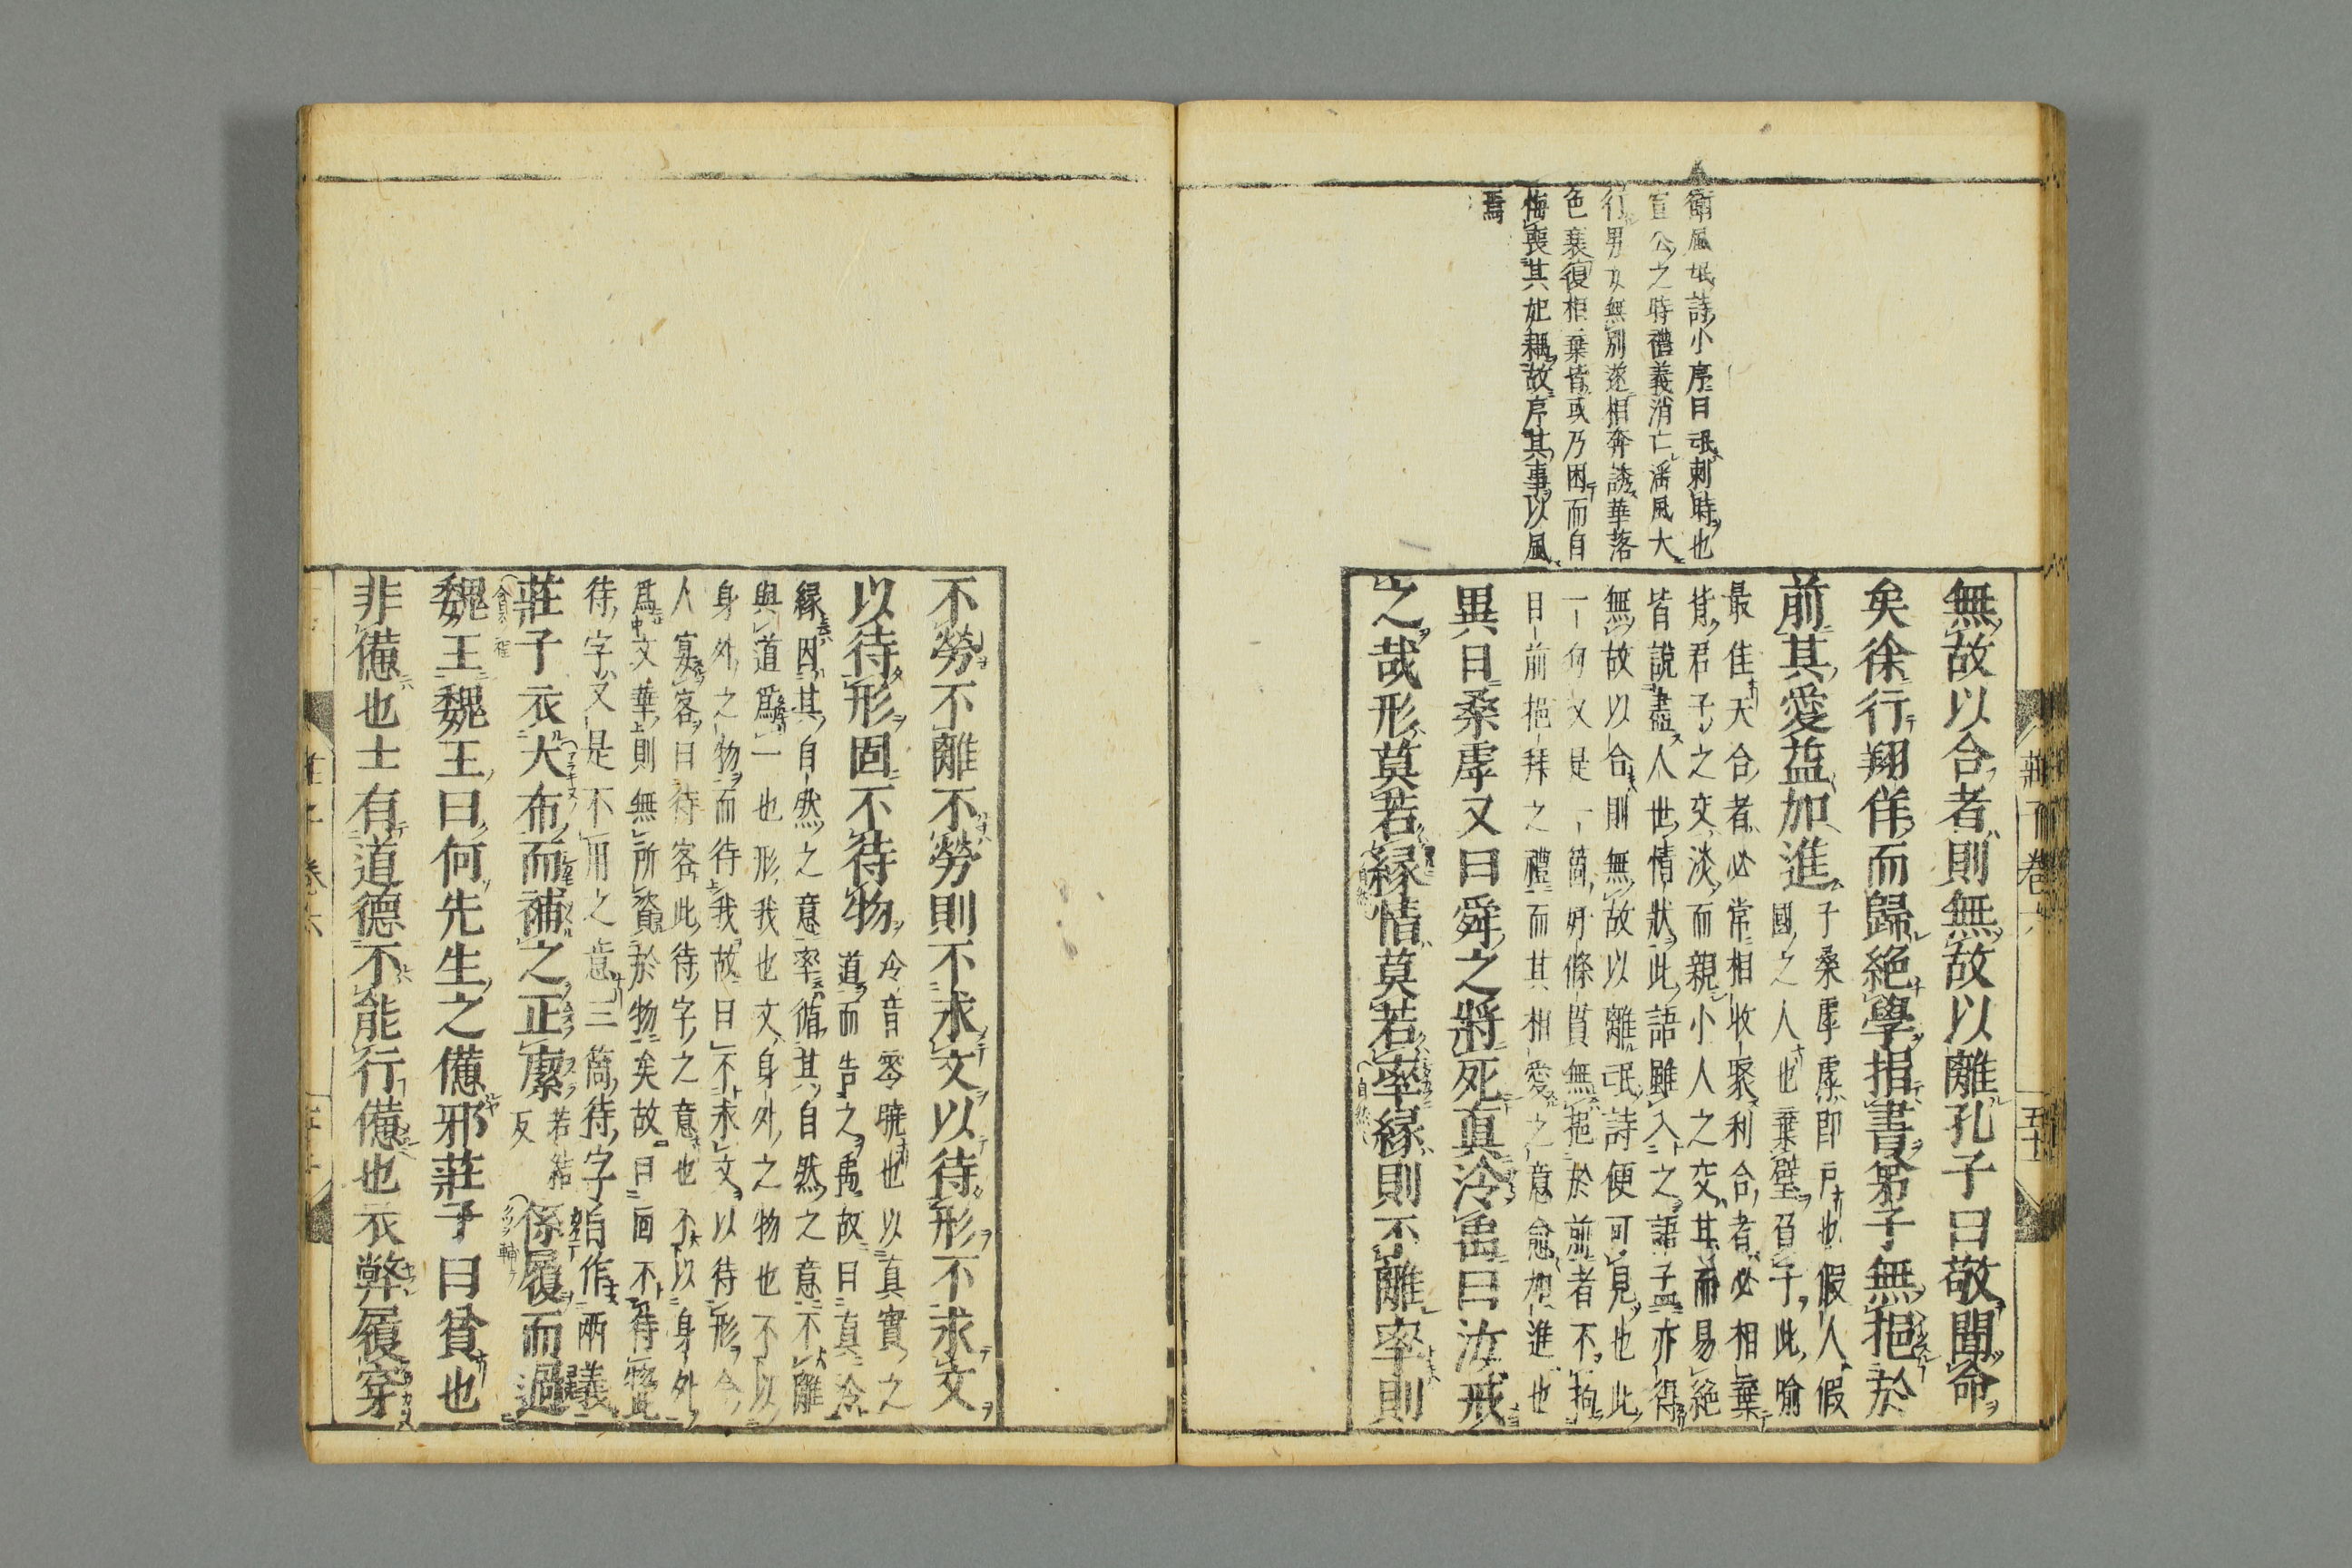 衛風氓詩小序曰氓刺時也
宣公之時禮義消亡淫風大
行男女無別遂相奔誘華落
色衰復相棄背或乃困而自
悔喪其妃耦故序其事以風
焉
無故以合者則無故以離孔子曰敬聞命
矣徐行翔佯而歸絶學捐書弟子無挹於
前其愛益加進
子桑雽雽即戸也假人假
國之人也棄璧負子此喻
最佳天合者必常相收聚利合者必相棄
背君子之交淡而親小人之交甘而易絶
皆說盡人世情狀此語雖入之語孟亦得
無故以合則無故以離氓詩便可見也此
一句又是一箇好條貫無挹於前者不拘
目前挹拜之禮而其相愛之意愈加進也
異日桑雽又曰舜之將死真泠禹曰汝戒
之哉形莫若縁情莫若率縁則不離率則
不勞不離不勞則不求文以待形不求文
以待形固不待物
泠音零曉也以真實之
道而告之禹故曰真泠
縁因其自然之意率循其自然之意不離
與道爲一也形我也文身外之物也不以
身外之物而待我故曰不求文以待形今
人宴客曰待客此待字之意也不以身外
爲文華則無所資於物矣故曰固不待物此
待字又是不用之意三箇待字自作兩義
莊子衣大布而補之正緳
若結
反
係履而過
魏王魏王曰何先生之憊邪莊子曰貧也
非憊也士有道德不能行憊也衣弊履穿
莊子卷六